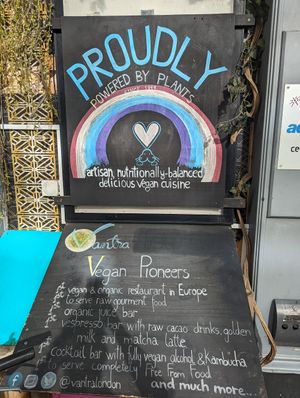 PROUDLY
POWERED BY PLANTS
artisan, nutritionally-balanced
delicious vegan cuisine
Vantra
Vegan Pioneers
vegan & organic restaurant in Europe
to serve raw gourmet food
organic juice bar
vespresso bar with raw cacao drinks, golden
milk and matcha latte
cocktail bar with fully vegan alcohol & Kombucha
to serve completely Free From Food
and much more...
@vantralondon